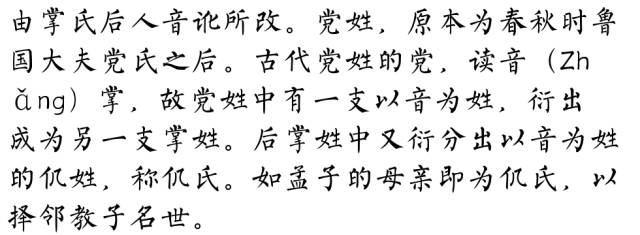 由掌氏后人音讹所改。党姓，原本为春秋时鲁
国大夫党氏之后。古代党姓的党，读音（Zh
ǎng）掌，故党姓中有一支以音为姓，衍出
成为另一支掌姓。后掌姓中又衍分出以音为姓
的仉姓，称仉氏。如孟子的母亲即为仉氏，以
择邻教子名世。